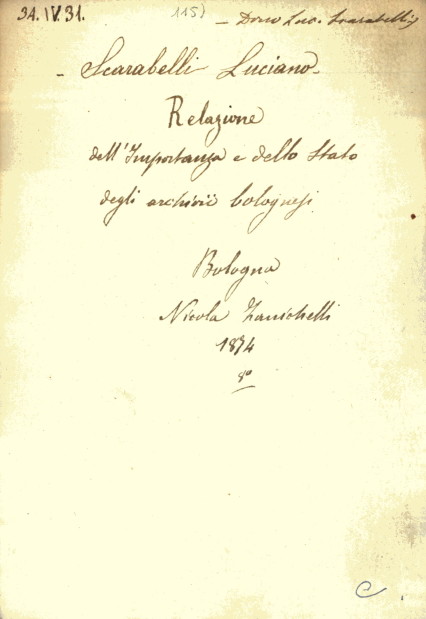 34.IV.31.
115)
- Dono Luc. Scarabelli
- Scarabelli Luciano -
Relazione
dell'Importanza e dello Stato
degli archivii bolognesi
Bologna
Nicola Zanichelli
1874
8º
C.